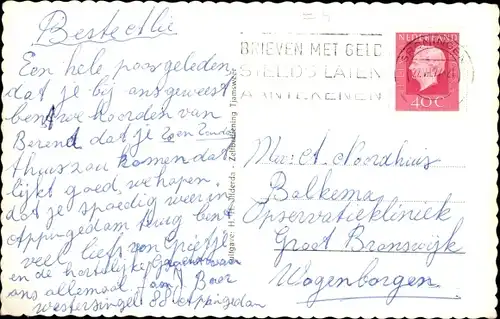 Beste Lie
Een hele poos geleden
dat je bij ons geweest
bent we hoorden van
Berend dat je zoen
thuis zou komen dat
lijkt goed, we hopen
dat je spoedig weer in
Appingedam terug bent
veel liefs van Grietje
en de hartelijke Groeten van
ons allemaal. J. Boer
Westersingel 88 Appingedam
Uitgave: H. Zelfbediening Tjamsweer
BRIEVEN MET GELD
STEEDS LATEN
AANTEKENEN
GRONINGEN
NEDERLAND
40 C
Mw. A. Noordhuis
Balkema
Opservatiekliniek
Groot Bronswijk
Wagenborgen